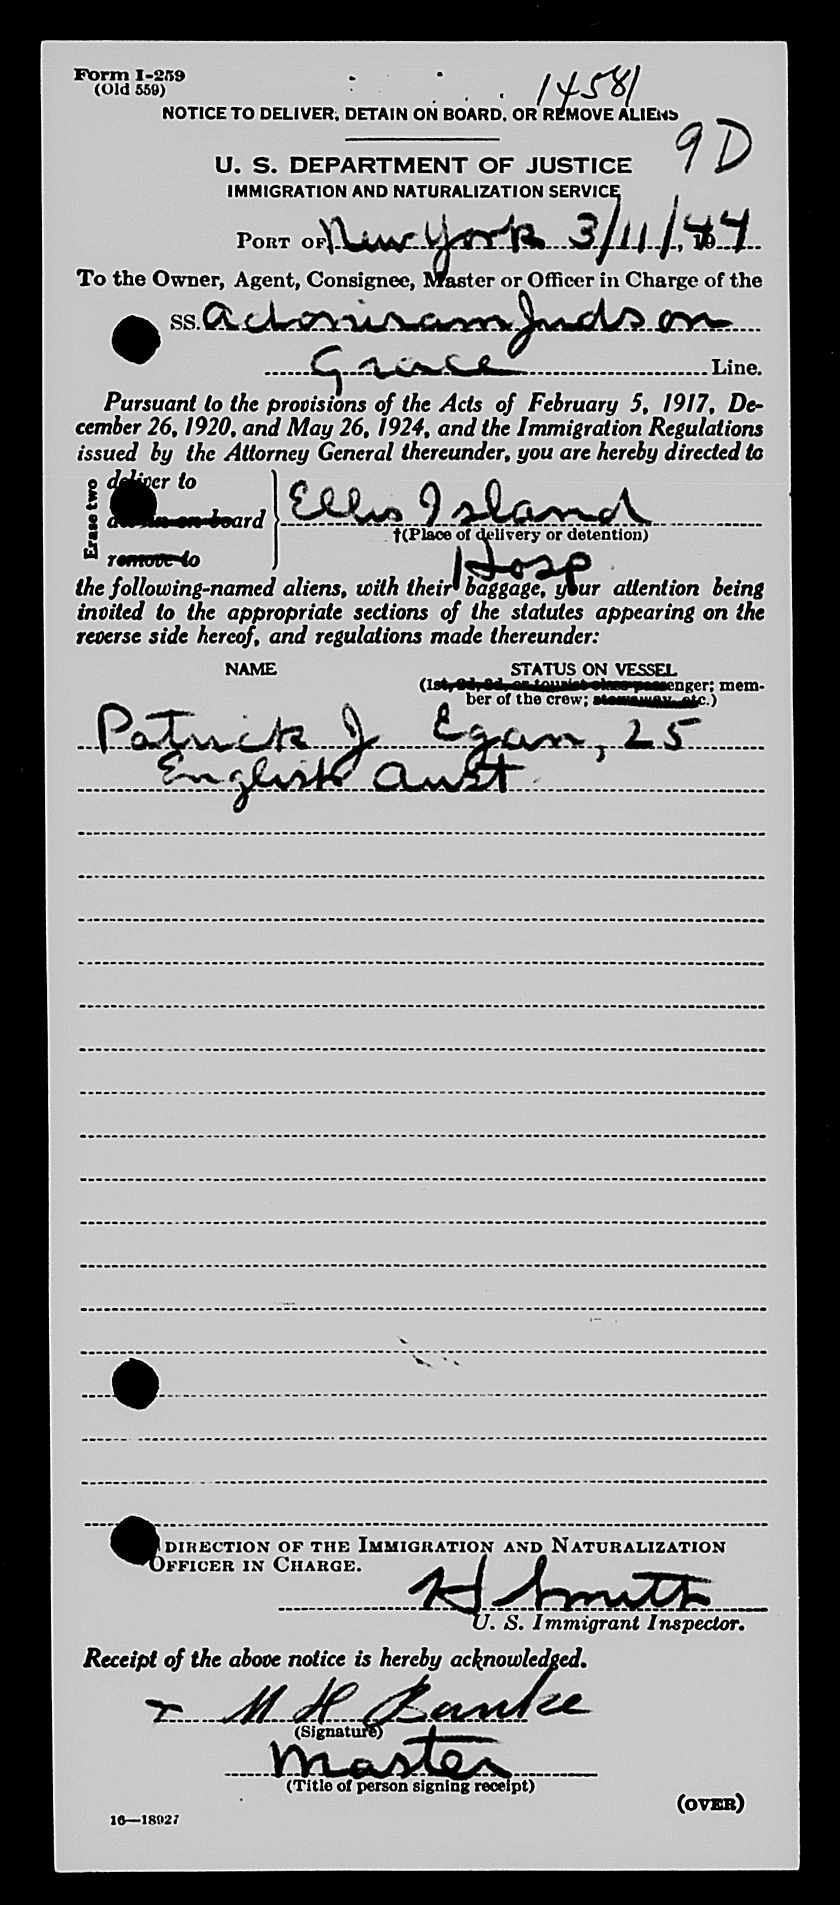 Form I-259
(Old 559)
14581
NOTICE TO DELIVER, DETAIN ON BOARD, OR REMOVE ALIENS
9D
U. S. DEPARTMENT OF JUSTICE
IMMIGRATION AND NATURALIZATION SERVICE
PORT OF New York 3/11/, 1944
To the Owner, Agent, Consignee, Master or Officer in Charge of the
SS. Adoniram Judson
Grace Line.
Pursuant to the provisions of the Acts of February 5, 1917, De-
cember 26, 1920, and May 26, 1924, and the Immigration Regulations
issued by the Attorney General thereunder, you are hereby directed to
Erase two
deliver to
board
remove to
Ellis Island
†(Place of delivery or detention)
Hosp
the following-named aliens, with their baggage, your attention being
invited to the appropriate sections of the statutes appearing on the
reverse side hereof, and regulations made thereunder:
NAME STATUS ON VESSEL
(1st, 2d, 3d, or tourist class passenger; mem-
ber of the crew; stowaway, etc.)
Patrick J Egan, 25
English Aust
DIRECTION OF THE IMMIGRATION AND NATURALIZATION
OFFICER IN CHARGE.
H Smith
U. S. Immigrant Inspector.
Receipt of the above notice is hereby acknowledged.
M H Banke
(Signature)
Master
(Title of person signing receipt)
(OVER)
16—18927